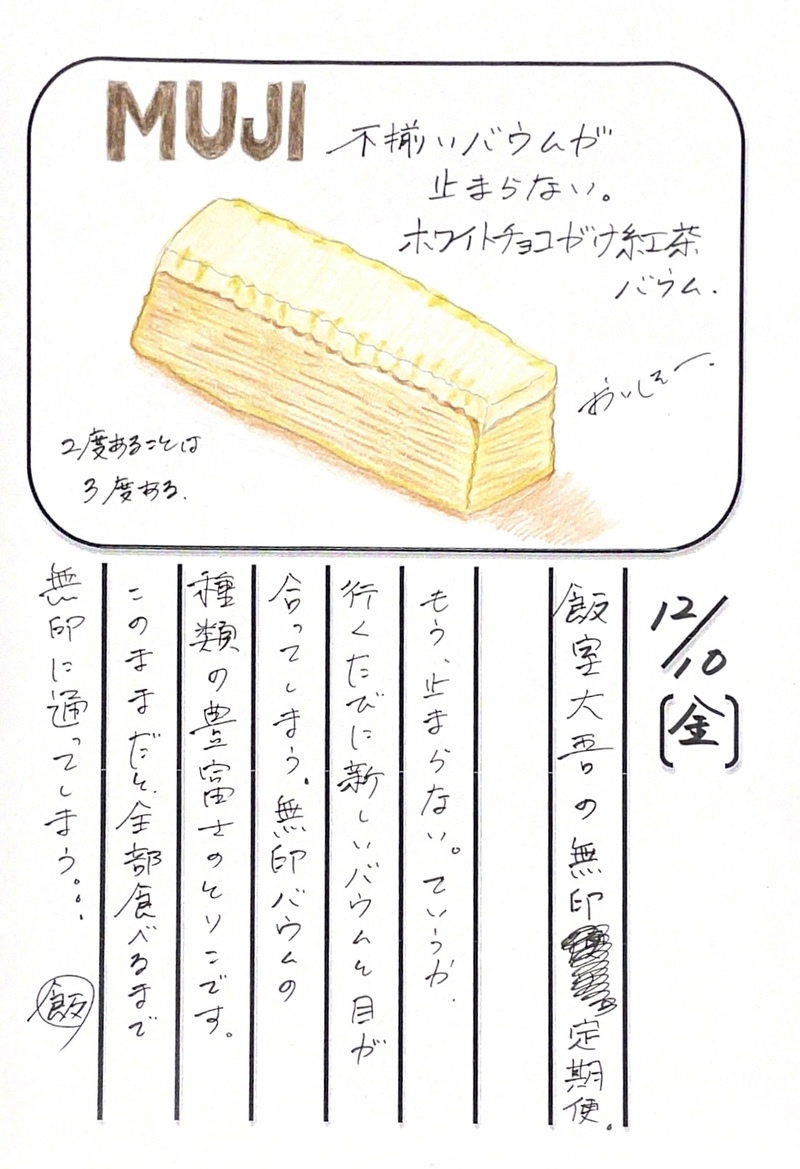 MUJI
不揃いバウムが
止まらない。
ホワイトチョコがけ紅茶
バウム.
おいしそー.
2度あることは
3度ある.
12/10
[金]
飯室大吾の無印定期便。
もう、止まらない。ていうか.
行くたびに新しいバウムと目が
合ってしまう。無印バウムの
種類の豊富さのとりこです。
このままだと、全部食べるまで
無印に通ってしまう。。.
飯